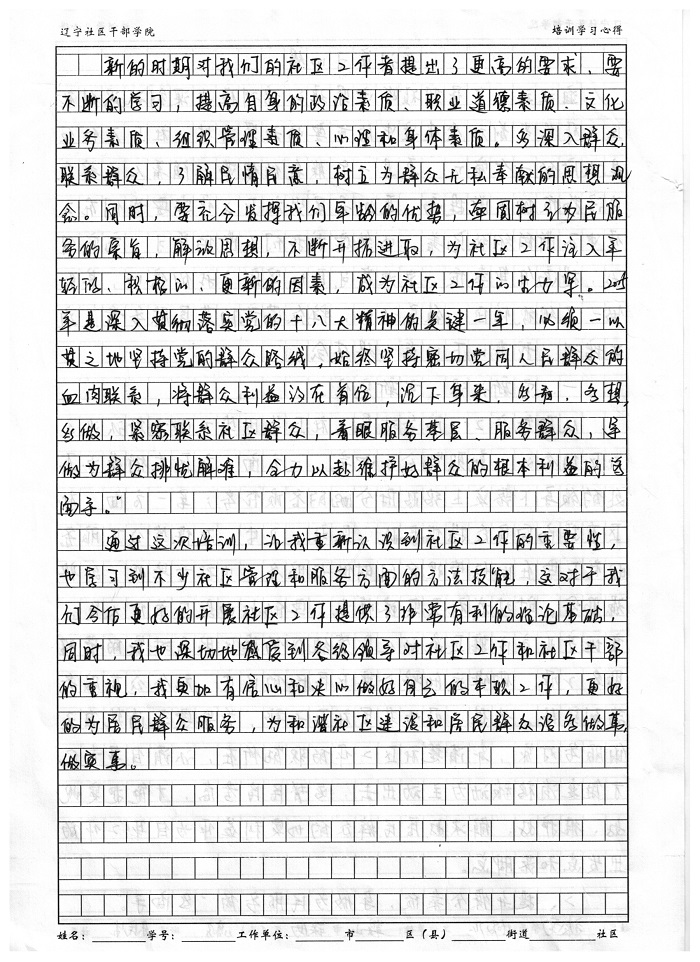 辽宁社区干部学院 培训学习心得
新的时期对我们的社区工作者提出了更高的要求、要
不断的学习，提高自身的政治素质、职业道德素质、文化
业务素质、组织管理素质、心理和身体素质。多深入群众，
联系群众，了解民情民意，树立为群众无私奉献的思想观
念。同时，要充分发挥我们年龄的优势，牢固树立为民服
务的宗旨，解放思想，不断开拓进取，为社区工作注入年
轻的、积极的、更新的因素，成为社区工作的生力军。2015
年是深入贯彻落实党的十八大精神的关键一年，必须一以
贯之地坚持党的群众路线，始终坚持密切党同人民群众的
血肉联系，将群众利益放在首位，沉下身来，多看，多想，
多做，紧密联系社区群众，着眼服务基层、服务群众，争
做为群众排忧解难，全力以赴维护好群众的根本利益的多
面手。"
通过这次培训，让我重新认识到社区工作的重要性，
也学习到不少社区管理和服务方面的方法技能，这对于我
们今后更好的开展社区工作提供了非常有利的理论基础，
同时，我也深切地感受到各级领导对社区工作和社区干部
的重视，我更加有信心和决心做好自己的本职工作，更好
的为居民群众服务，为和谐社区建设和居民群众多做事，
做实事。
姓名： 学号： 工作单位： 市 区（县） 街道 社区